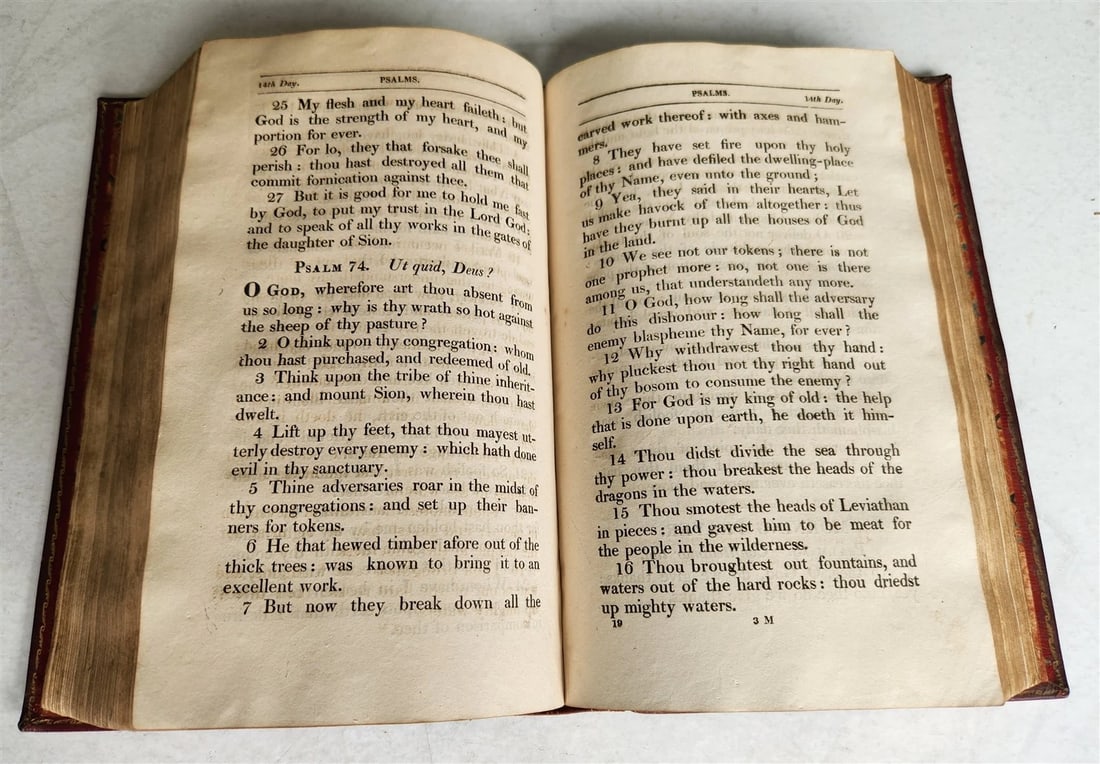 14th Day.
PSALMS.
25 My flesh and my heart faileth: but
God is the strength of my heart, and my
portion for ever.
26 For lo, they that forsake thee shall
perish: thou hast destroyed all them that
commit fornication against thee.
27 But it is good for me to hold me fast
by God, to put my trust in the Lord God:
and to speak of all thy works in the gates of
the daughter of Sion.
PSALM 74. Ut quid, Deus?
O GOD, wherefore art thou absent from
us so long: why is thy wrath so hot against
the sheep of thy pasture?
2 O think upon thy congregation: whom
thou hast purchased, and redeemed of old.
3 Think upon the tribe of thine inherit-
ance: and mount Sion, wherein thou hast
dwelt.
4 Lift up thy feet, that thou mayest ut-
terly destroy every enemy: which hath done
evil in thy sanctuary.
5 Thine adversaries roar in the midst of
thy congregations: and set up their ban-
ners for tokens.
6 He that hewed timber afore out of the
thick trees: was known to bring it to an
excellent work.
7 But now they break down all the
PSALMS.
14th Day.
carved work thereof: with axes and ham-
mers.
8 They have set fire upon thy holy
places: and have defiled the dwelling-place
of thy Name, even unto the ground;
9 Yea, they said in their hearts, Let
us make havock of them altogether: thus
have they burnt up all the houses of God
in the land.
10 We see not our tokens; there is not
one prophet more: no, not one is there
among us, that understandeth any more.
11 O God, how long shall the adversary
do this dishonour: how long shall the
enemy blaspheme thy Name, for ever?
12 Why withdrawest thou thy hand:
why pluckest thou not thy right hand out
of thy bosom to consume the enemy?
13 For God is my king of old: the help
that is done upon earth, he doeth it him-
self.
14 Thou didst divide the sea through
thy power: thou breakest the heads of the
dragons in the waters.
15 Thou smotest the heads of Leviathan
in pieces: and gavest him to be meat for
the people in the wilderness.
16 Thou broughtest out fountains, and
waters out of the hard rocks: thou driedst
up mighty waters.
19 3 M